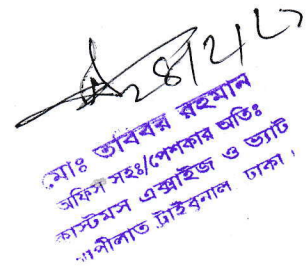 মোঃ তবিবর রহমান
অফিস সহঃ/পেশকার অতিঃ
কাস্টমস এক্সাইজ ও ভ্যাট
আপীলাত ট্রাইবুনাল ঢাকা।